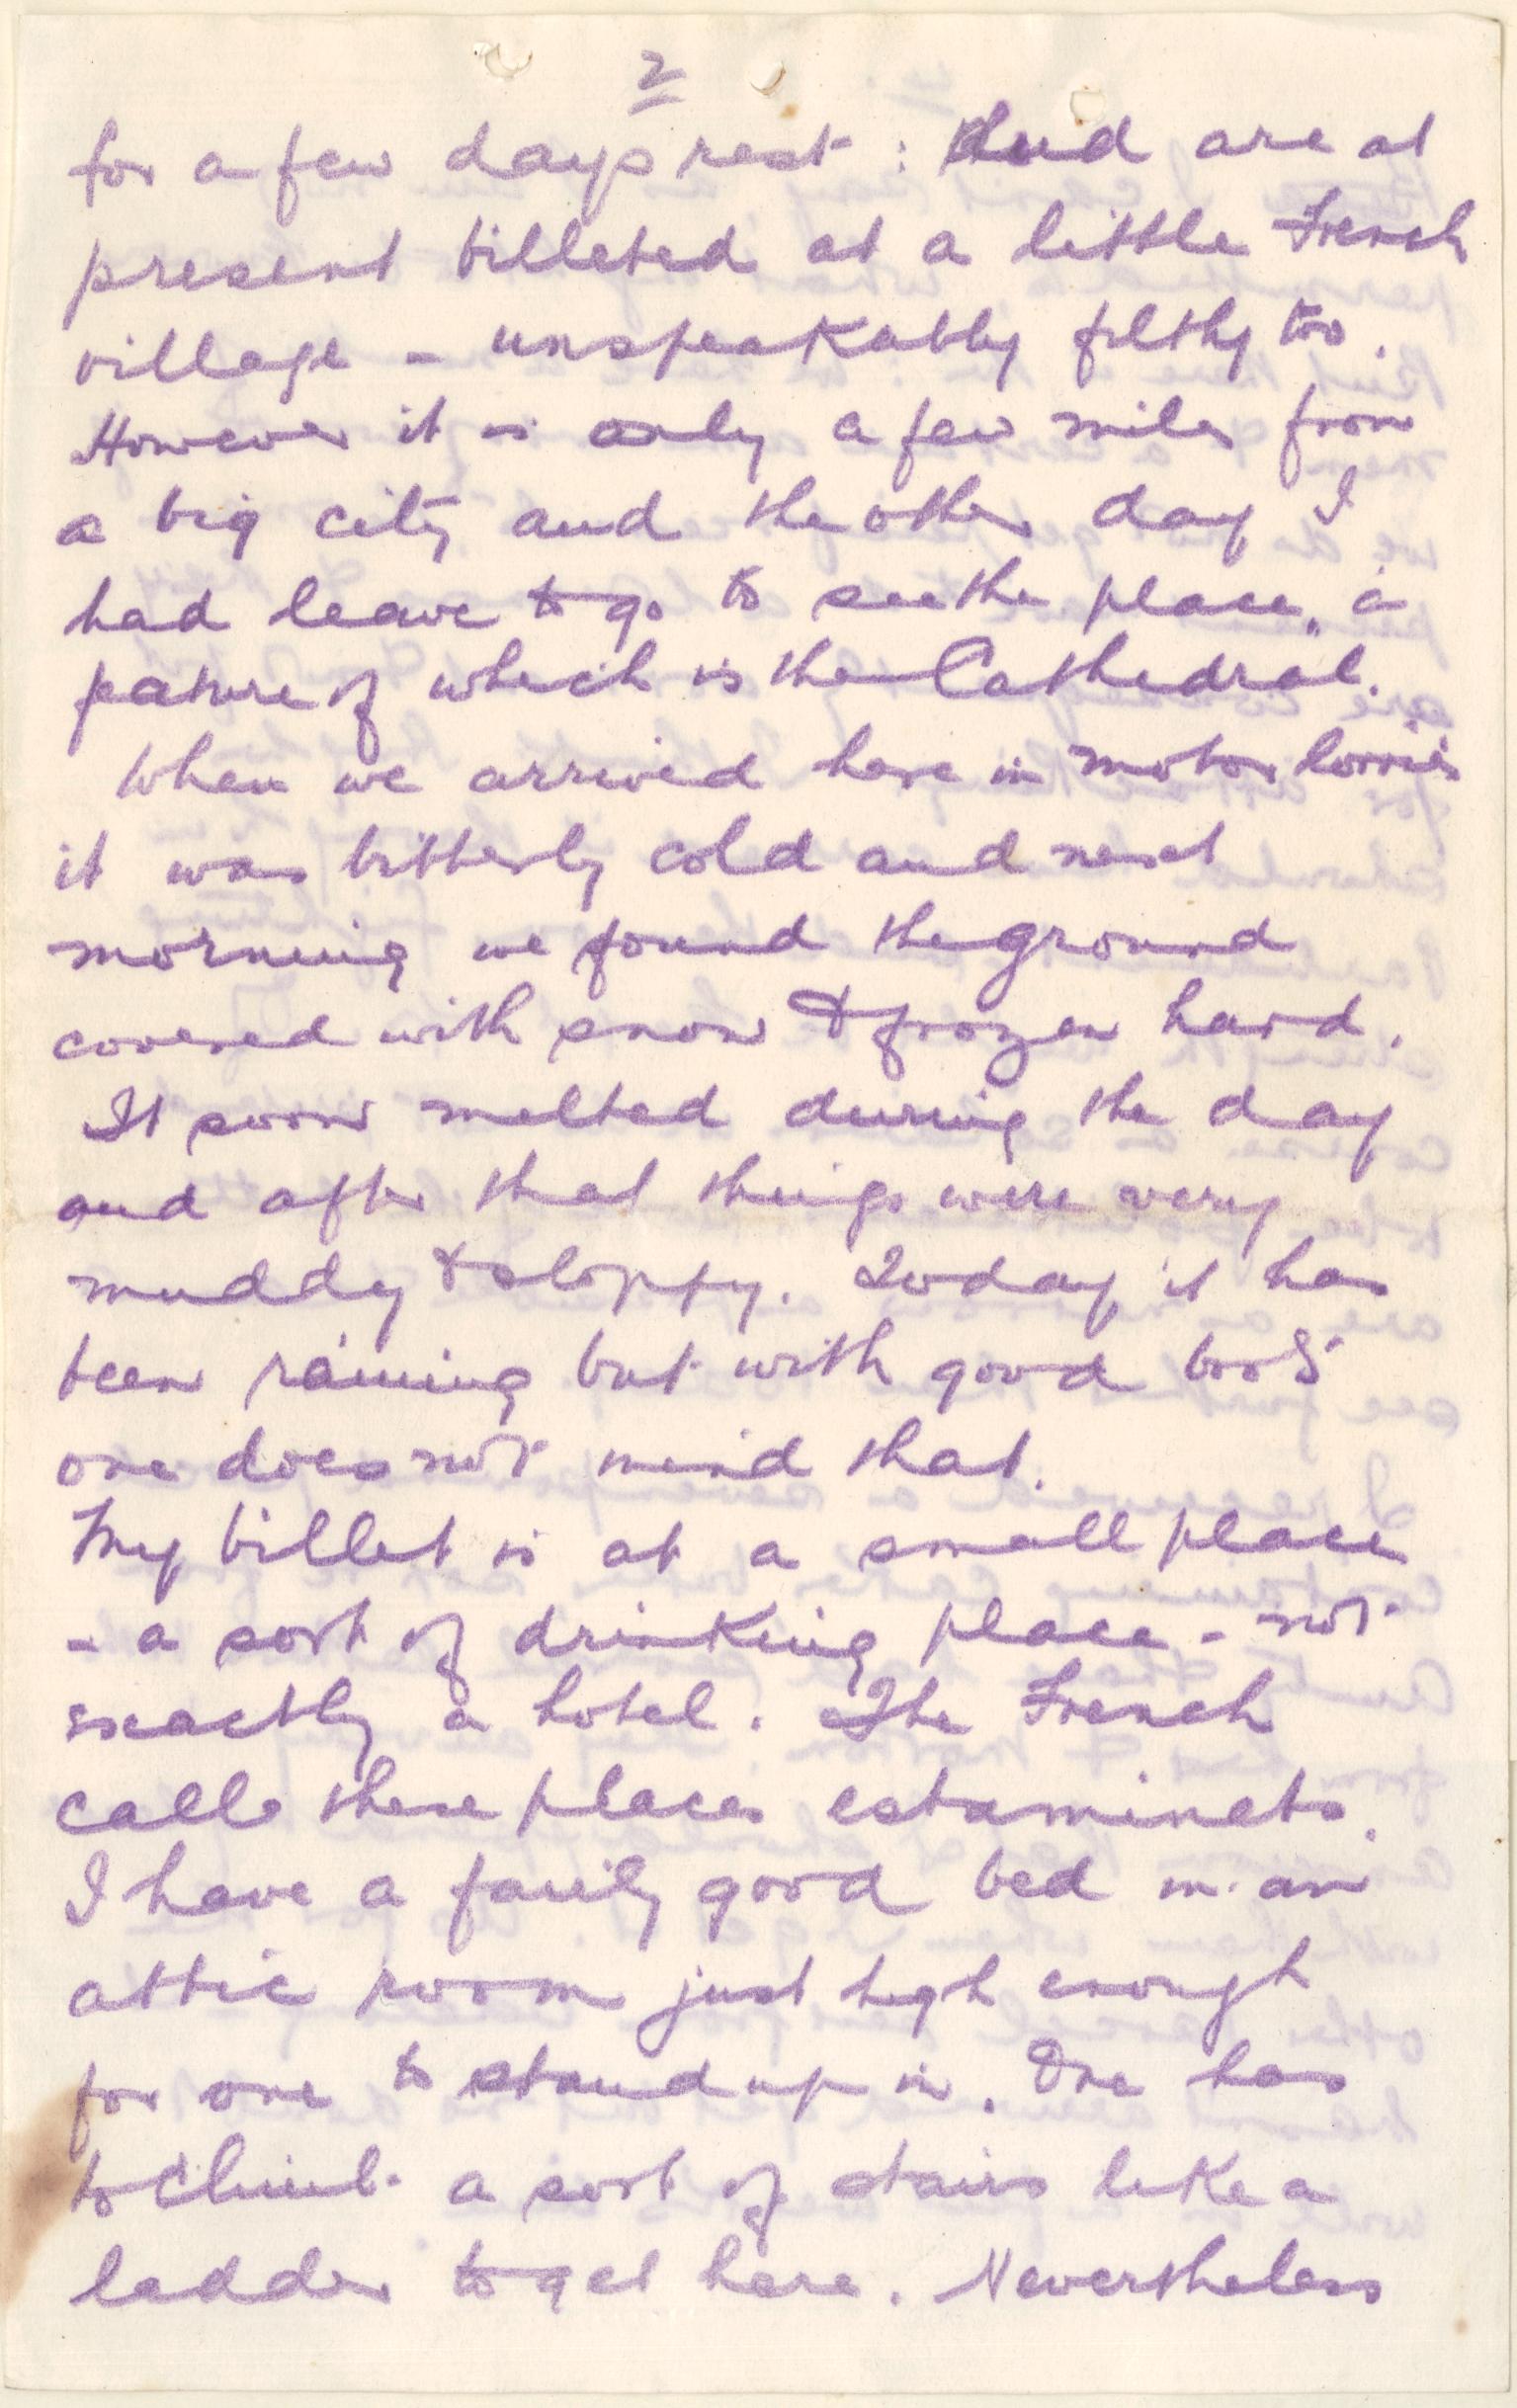 2
for a few days rest : And are at
present billeted at a little French
village - unspeakably filthy too.
However it is only a few miles from
a big city and the other day I
had leave to go to see the place, a
feature of which is the Cathedral.
When we arrived here in motor lorries
it was bitterly cold and next
morning we found the ground
covered with snow & frozen hard.
It soon melted during the day
and after that things were very
muddy & sloppy. Today it has
been raining but with good boots
one does not mind that.
My billet is at a small place
- a sort of drinking place - not
exactly a hotel. The French
call these places estaminets.
I have a fairly good bed in an
attic room just high enough
for one to stand up in. One has
to climb a sort of stairs like a
ladder to get here. Nevertheless